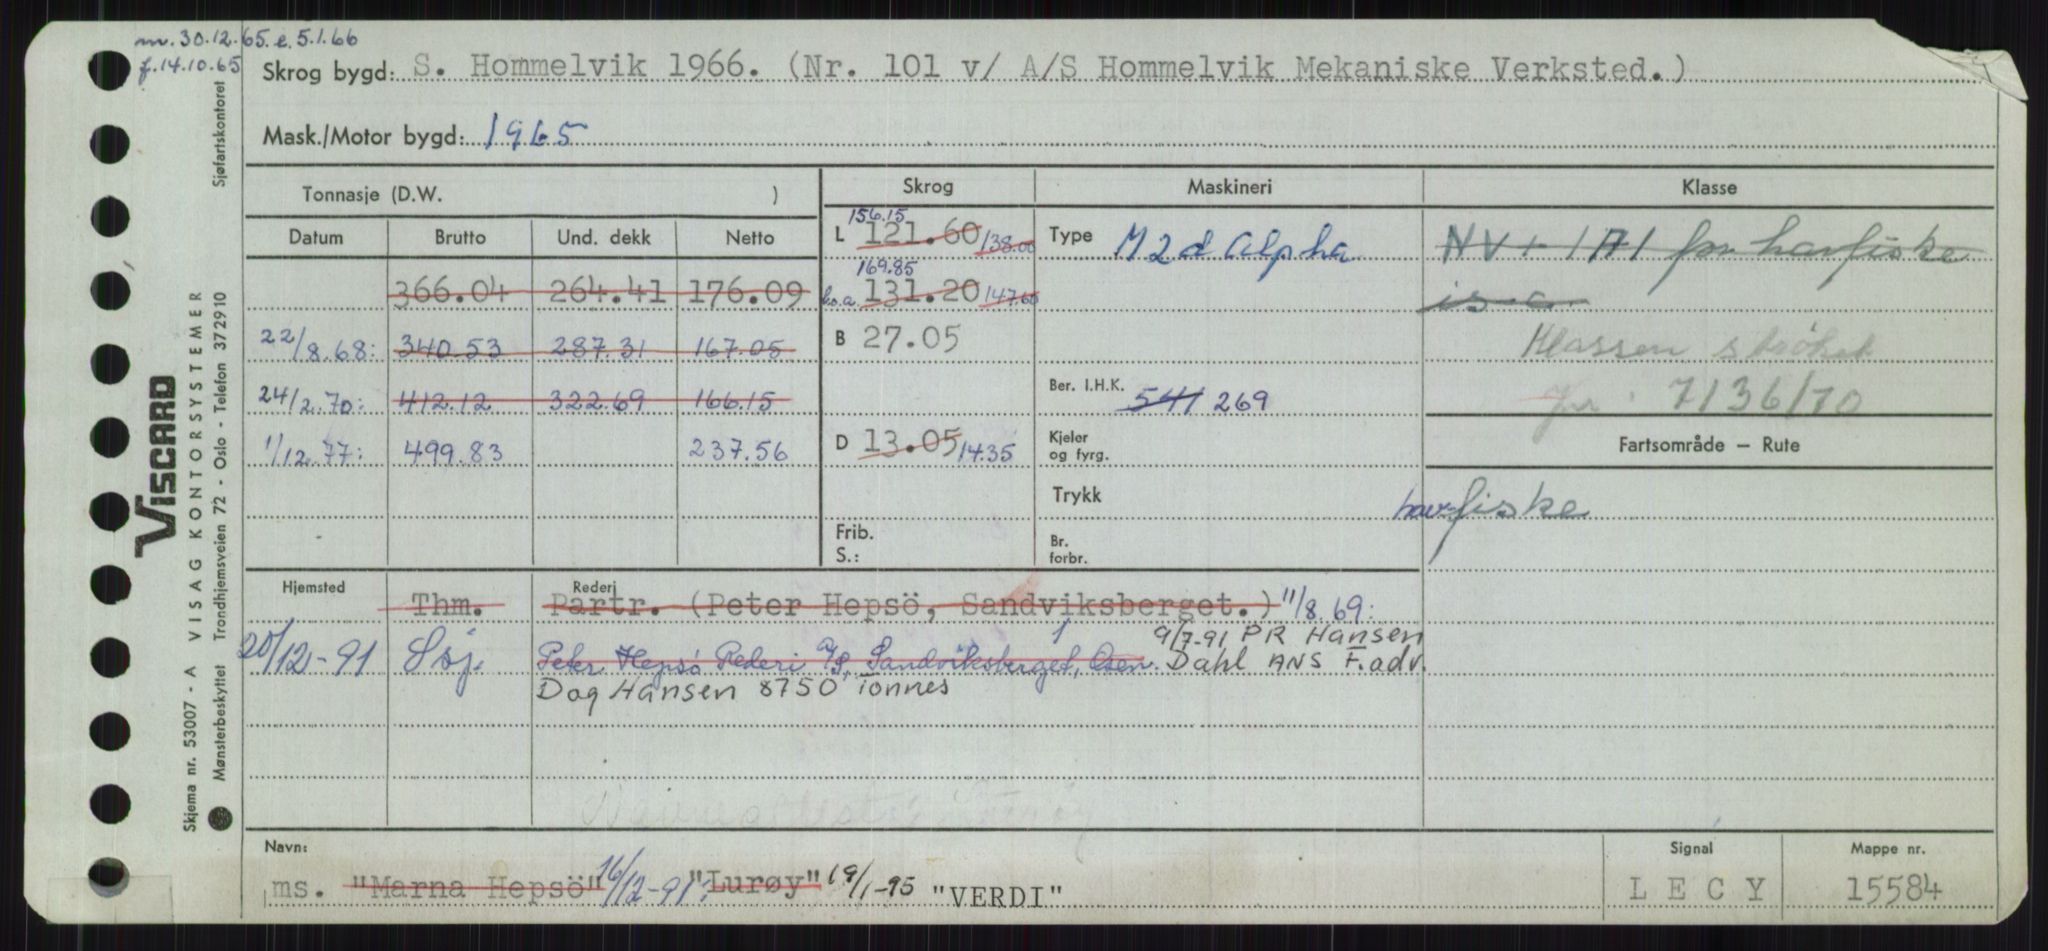 m. 30.12.65. e. 5.1.66
f. 14.10.65
Skrog bygd: S. Hommelvik 1966. (Nr. 101 v/ A/S Hommelvik Mekaniske Verksted.)
Mask./Motor bygd: 1965
Tonnasje (D.W. ) Skrog Maskineri Klasse
Datum Brutto Und. dekk Netto
L 156.15 121.60 138.00
Type M2d Alpha
NV + 1A1 for havfiske
is c.
366.04 264.41 176.09
169.85
l.o.a. 131.20 147.60
22/8.68: 340.53 287.31 167.05
B 27.05
Klassen strøket
24/2.70: 412.12 322.69 166.15
Ber. I.H.K. 541 269
Jnr. 7136/70
1/12.77: 499.83 237.56
D 13.05 14.35
Kjeler
og fyrg.
Fartsområde — Rute
Trykk
havfiske
Frib.
S.:
Br.
forbr.
Hjemsted Rederi
Thm. Partr. (Peter Hepsö, Sandviksberget.) 11/8.69:
20/12-91 Ssj. Peter Hepsö Rederi A/S, Sandviksberget, Osen. 9/7-91 PR Hansen
Dahl ANS F.adv.
Dag Hansen 8750 Tonnes
Navn: Signal Mappe nr.
ms. "Marna Hepsö" 16/12-91: "Lurøy" 19/1-95 "VERDI" LECY 15584
VISCARD
Skjema nr. 53007 - A VISAG KONTORSYSTEMER
Mønsterbeskyttet Trondhjemsveien 72 - Oslo - Telefon 372910 Sjøfartskontoret